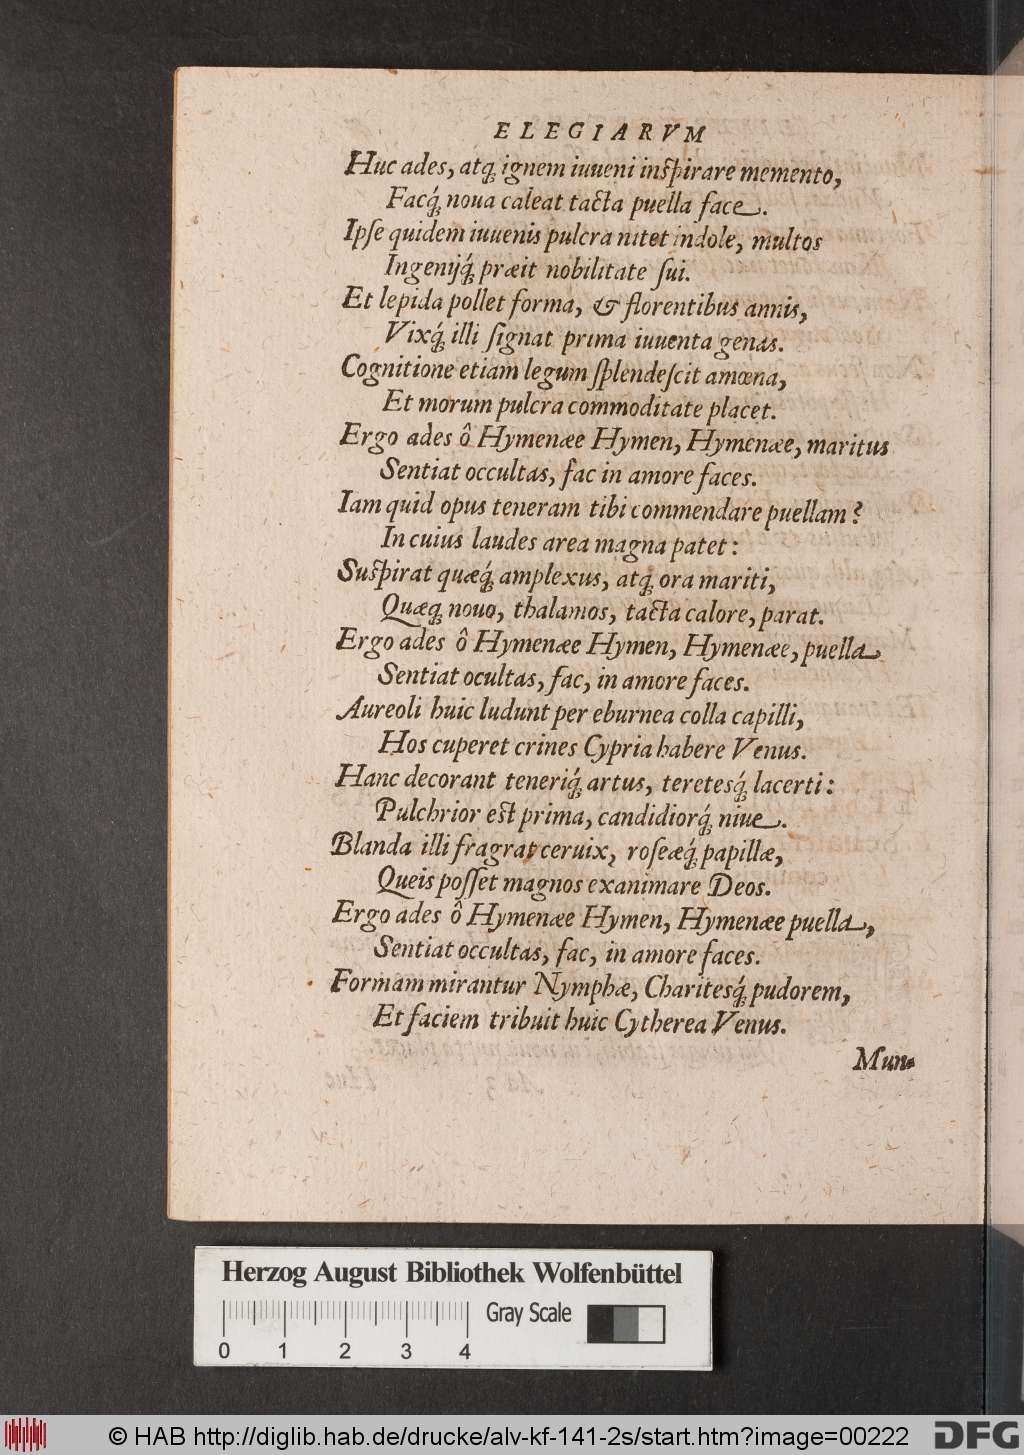 ELEGIARVM
Huc ades, atq́ ignem iuueni inspirare memento,
Facq́ noua caleat tacta puella face.
Ipſe quidem iuuenis pulcra nitet indole, multos
Ingenijq́ præit nobilitate ſui.
Et lepida pollet forma, & florentibus annis,
Vixq́ illi ſignat prima iuuenta genas.
Cognitione etiam legum ſplendeſcit amœna,
Et morum pulcra commoditate placet.
Ergo ades ô Hymenæe Hymen, Hymenæe, maritus
Sentiat occultas, fac in amore faces.
Iam quid opus teneram tibi commendare puellam?
In cuius laudes area magna patet:
Suspirat quæq́ amplexus, atq́ ora mariti,
Quæq́ nouo, thalamos, tacta calore, parat.
Ergo ades ô Hymenæe Hymen, Hymenæe, puella
Sentiat ocultas, fac, in amore faces.
Aureoli huic ludunt per eburnea colla capilli,
Hos cuperet crines Cypria habere Venus.
Hanc decorant teneriq́ artus, teretesq́ lacerti:
Pulchrior est prima, candidiorq́ niue.
Blanda illi fragrat ceruix, roſeæq́ papillæ,
Queis poſſet magnos exanimare Deos.
Ergo ades ô Hymenæe Hymen, Hymenæe puella,
Sentiat occultas, fac, in amore faces.
Formam mirantur Nymphæ, Charitesq́ pudorem,
Et faciem tribuit huic Cytherea Venus.
Mun-
Herzog August Bibliothek Wolfenbüttel
Gray Scale
0 1 2 3 4
© HAB http://diglib.hab.de/drucke/alv-kf-141-2s/start.htm?image=00222
DFG